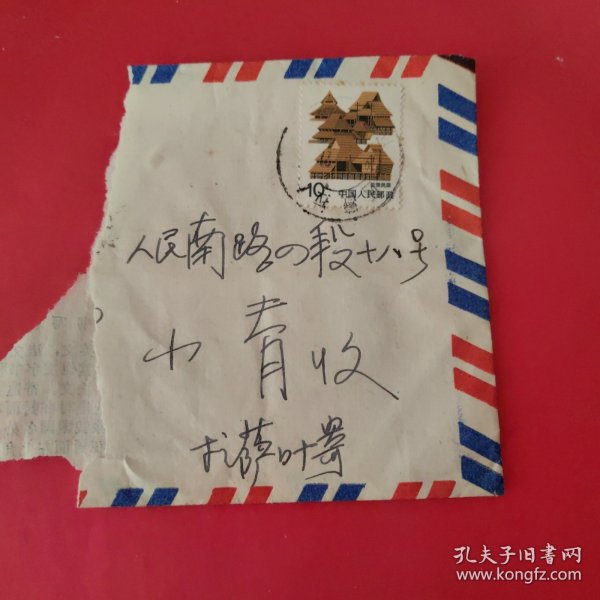 10分
云南民居
中国人民邮政
人民南路の段十八号
小青收
拉萨叶寄
孔夫子旧书网
www.kongfz.com